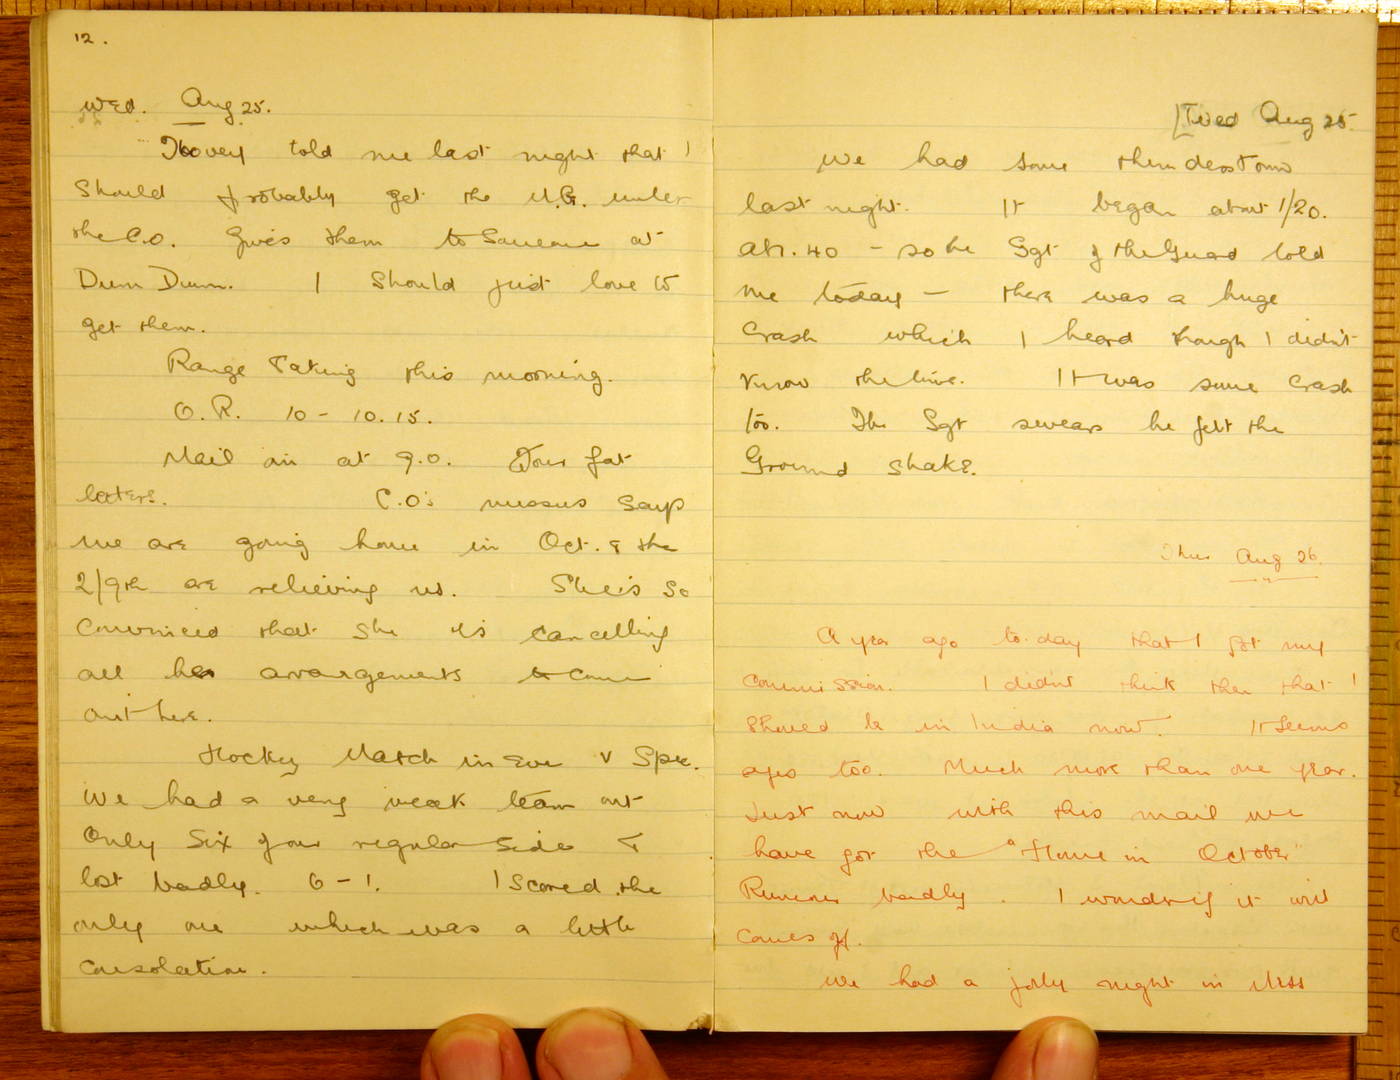 12.
Wed. Aug 25.
told me last night that I
should probably get the M.G. unless
the C.O. gives them to someone at
Dum Dum. I should just love to
get them.
Range Taking this morning.
O.R. 10 - 10.15.
Mail in at 9.0. Four fat
letters. C.O's missus says
we are going home in Oct. & the
2/9th are relieving us. She is so
convinced that she is cancelling
all her arrangements to come
out here.
Hockey Match in Eve v Spec.
We had a very weak team out
Only Six of our regular side &
lost badly. 6 - 1. I scored the
only one which was a little
consolation.
[Wed Aug 25
We had some thunderstorm
last night. It began about 1/20.
At 1.40 - so the Sgt of the Guard told
me today - there was a huge
Crash which I heard though I didn't
know the time. It was some crash
too. The Sgt swears he felt the
Ground shake.
Thur Aug 26.
A year ago to-day that I got my
Commission. I didn't think then that I
should be in India now. It seems
ages too. Much more than one year.
Just now with this mail we
have got the "Home in October"
Rumour badly. I wonder if it will
comes off.
We had a jolly night in Mess